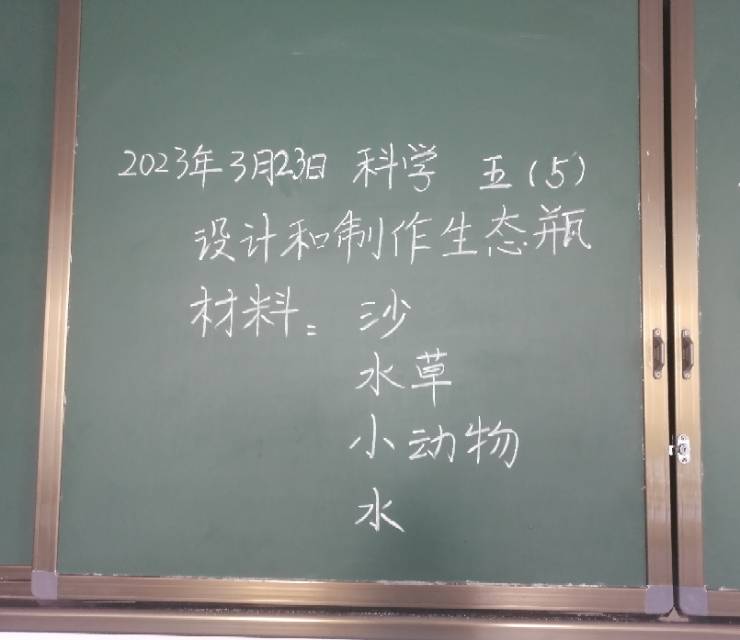 2023年3月23日 科学 五(5)
设计和制作生态瓶
材料：沙
水草
小动物
水